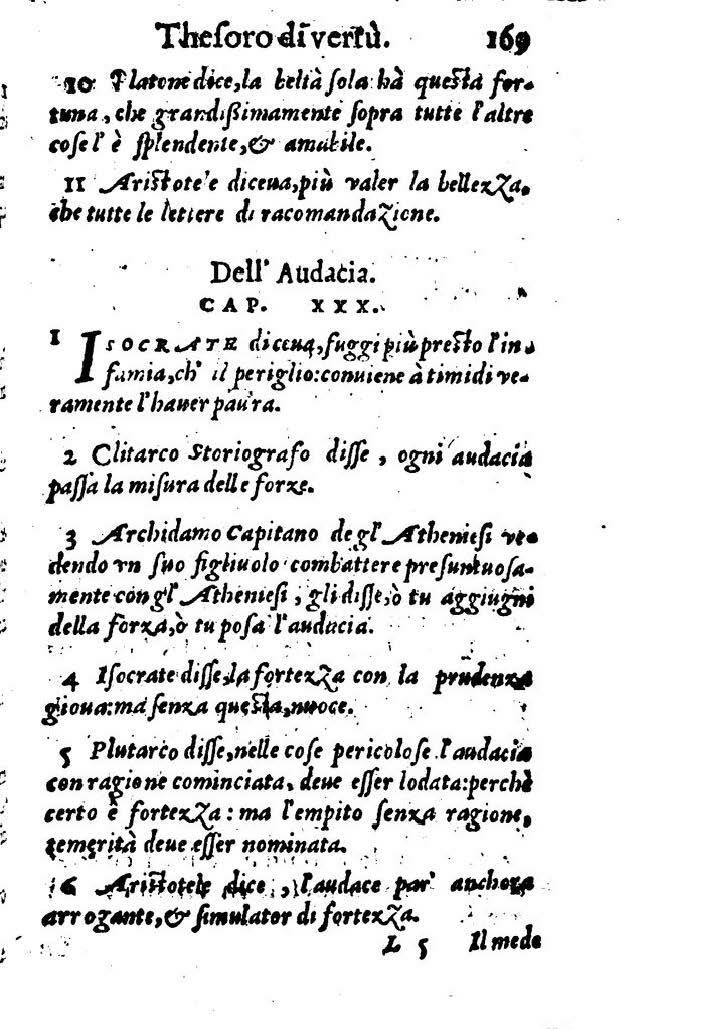 Theſoro di vertù. 169
10 Platone dice, la beltà ſola hà queſta for-
tuna, che grandiſſimamente ſopra tutte l'altre
coſe l' è ſplendente, & amabile.
11 Ariſtote'e diceua, più valer la bellezza,
che tutte le lettere di racomandazione.
Dell' Audacia.
CAP. XXX.
1 ISOCRATE diceua, fuggi più preſto l'in-
famia, ch' il periglio: conuiene à timidi ve-
ramente l'hauer paura.
2 Clitarco Storiografo diſſe, ogni audacia
paſſa la miſura delle forze.
3 Archidamo Capitano de gl' Athenieſi ve-
dendo vn ſuo figliuolo combattere preſuntuoſa-
mente con gl' Athenieſi, gli diſſe, ò tu aggiugni
della forza, ò tu poſa l'audacia.
4 Iſocrate diſſe, la fortezza con la prudenza
gioua: ma ſenza queſta, nuoce.
5 Plutarco diſſe, nelle coſe pericoloſe l'audacia
con ragione cominciata, deue eſſer lodata: perchè
certo è fortezza: ma l'empito ſenza ragione,
temerità deue eſſer nominata.
6 Ariſtotele dice, l'audace par' anchora
arrogante, & ſimulator di fortezza.
L 5 Il mede